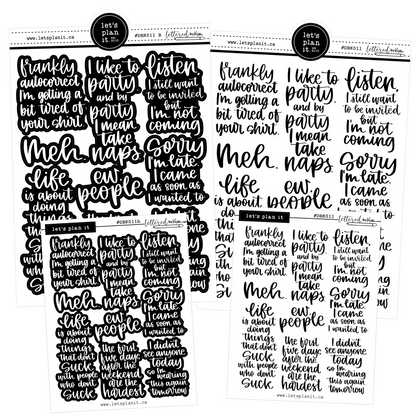 let's
plan
it.
www.letsplanit.ca
#DBK011 B
frankly
autocorrect
I'm getting a
bit tired of
your shirt.
I like to
party.
and by
party
I mean
take
naps.
listen,
I still want
to be invited
but
I'm not
coming
Meh.
Sorry
I'm late.
I came
as soon as
I wanted to
life
is about
doing
things
ew,
people
let's
plan
it.
www.letsplanit.ca
#DBK011
frankly
autocorrect
I'm getting a
bit tired of
your shirt.
I like to
party.
and by
party
I mean
take
naps.
listen,
I still want
to be invited
but
I'm not
coming
Meh.
Sorry
I'm late.
I came
as soon as
I wanted to
life
is about
doing
ew,
people
let's plan it
#DBK011b
frankly
autocorrect
I'm getting a
bit tired of
your shirt.
I like to
party.
and by
party
I mean
take
naps.
listen,
I still want
to be invited
but
I'm not
coming
Meh.
Sorry
I'm late.
I came
as soon as
I wanted to
life
is about
doing
things
that don't
Suck
with people
who don't
Suck
ew,
people
the first
five days
after the
weekend
are the
hardest
I didn't
see anyone
today
so I'm
wearing
this again
tomorrow
www.letsplanit.ca
let's plan it
#DBK011
frankly
autocorrect
I'm getting a
bit tired of
your shirt.
I like to
party.
and by
party
I mean
take
naps.
listen,
I still want
to be invited
but
I'm not
coming
Meh.
Sorry
I'm late.
I came
as soon as
I wanted to
life
is about
doing
things
that don't
Suck
with people
who don't
Suck
ew,
people
the first
five days
after the
weekend
are the
hardest
I didn't
see anyone
today
so I'm
wearing
this again
tomorrow
www.letsplanit.ca